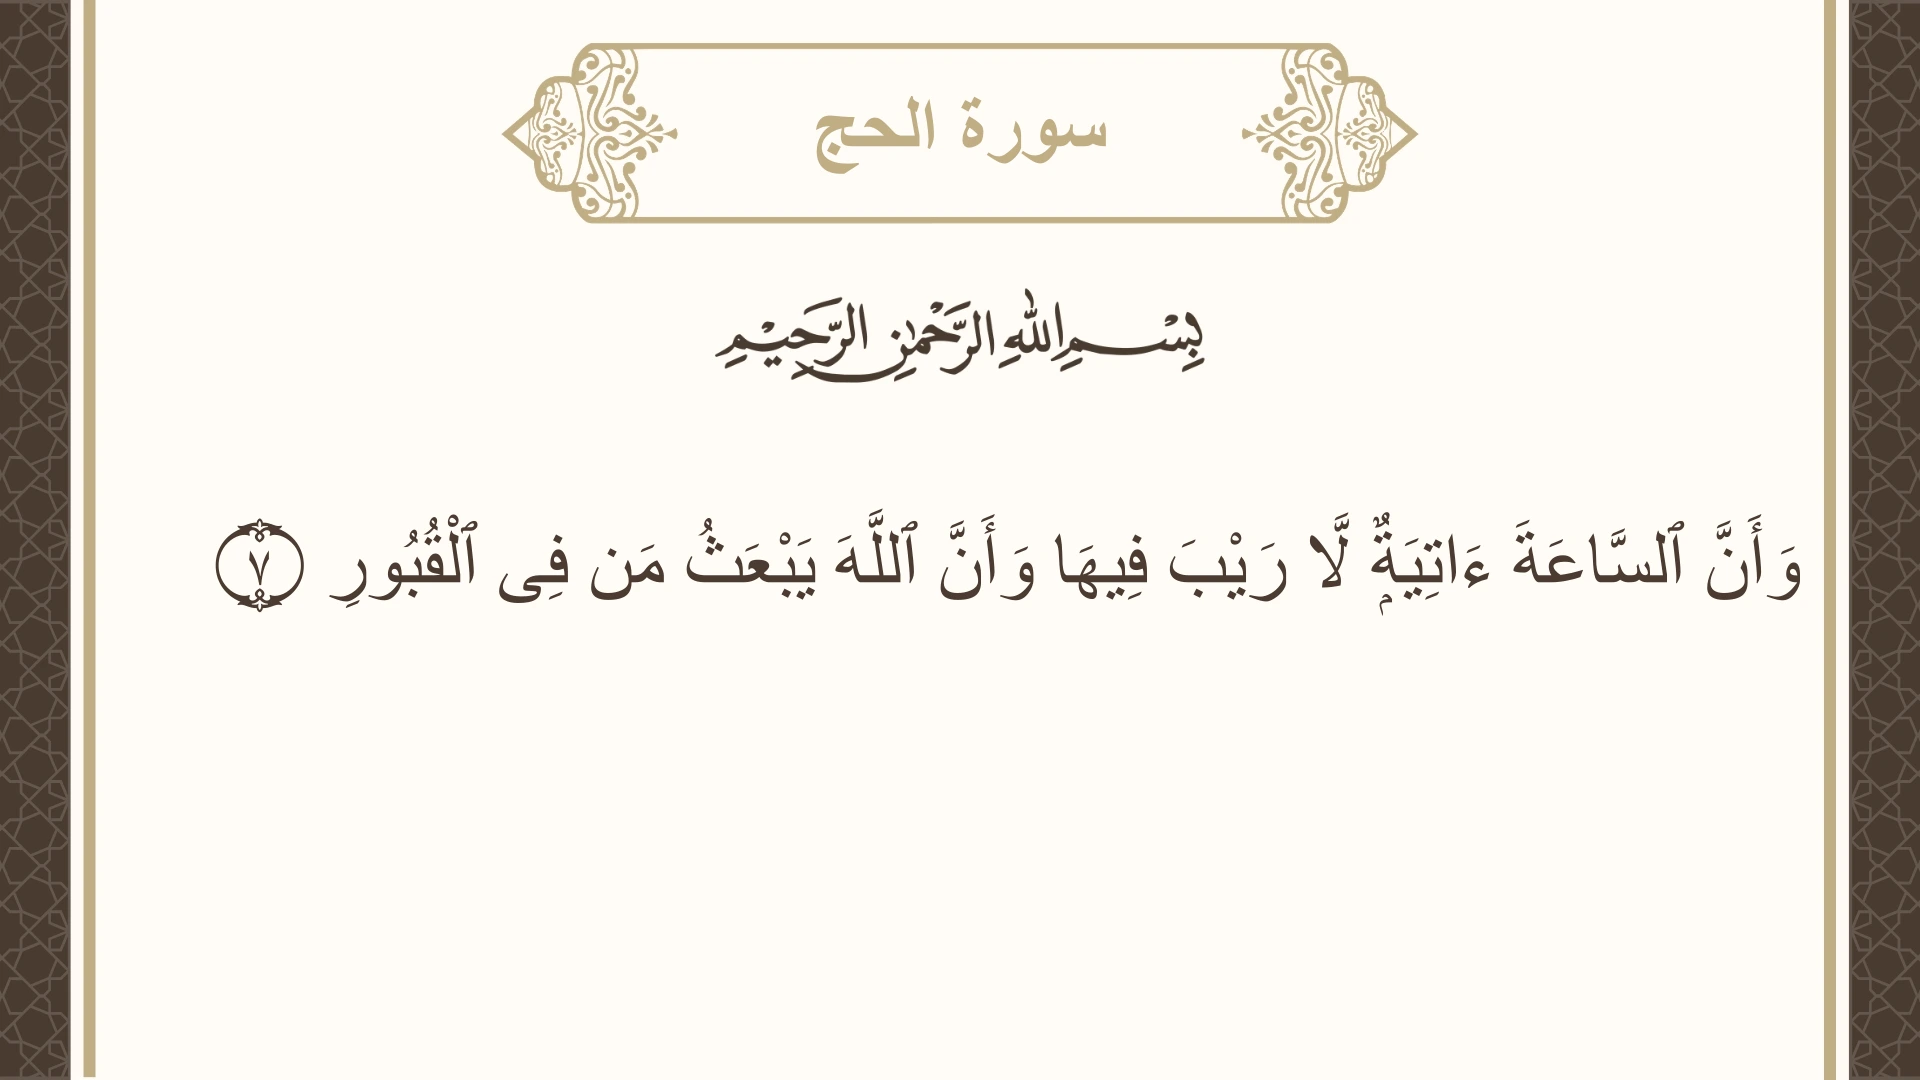 سورة الحج
بِسْمِ اللهِ الرَّحْمٰنِ الرَّحِيْمِ
وَأَنَّ ٱلسَّاعَةَ ءَاتِيَةٌۭ لَّا رَيْبَ فِيهَا وَأَنَّ ٱللَّهَ يَبْعَثُ مَن فِى ٱلْقُبُورِ ٧